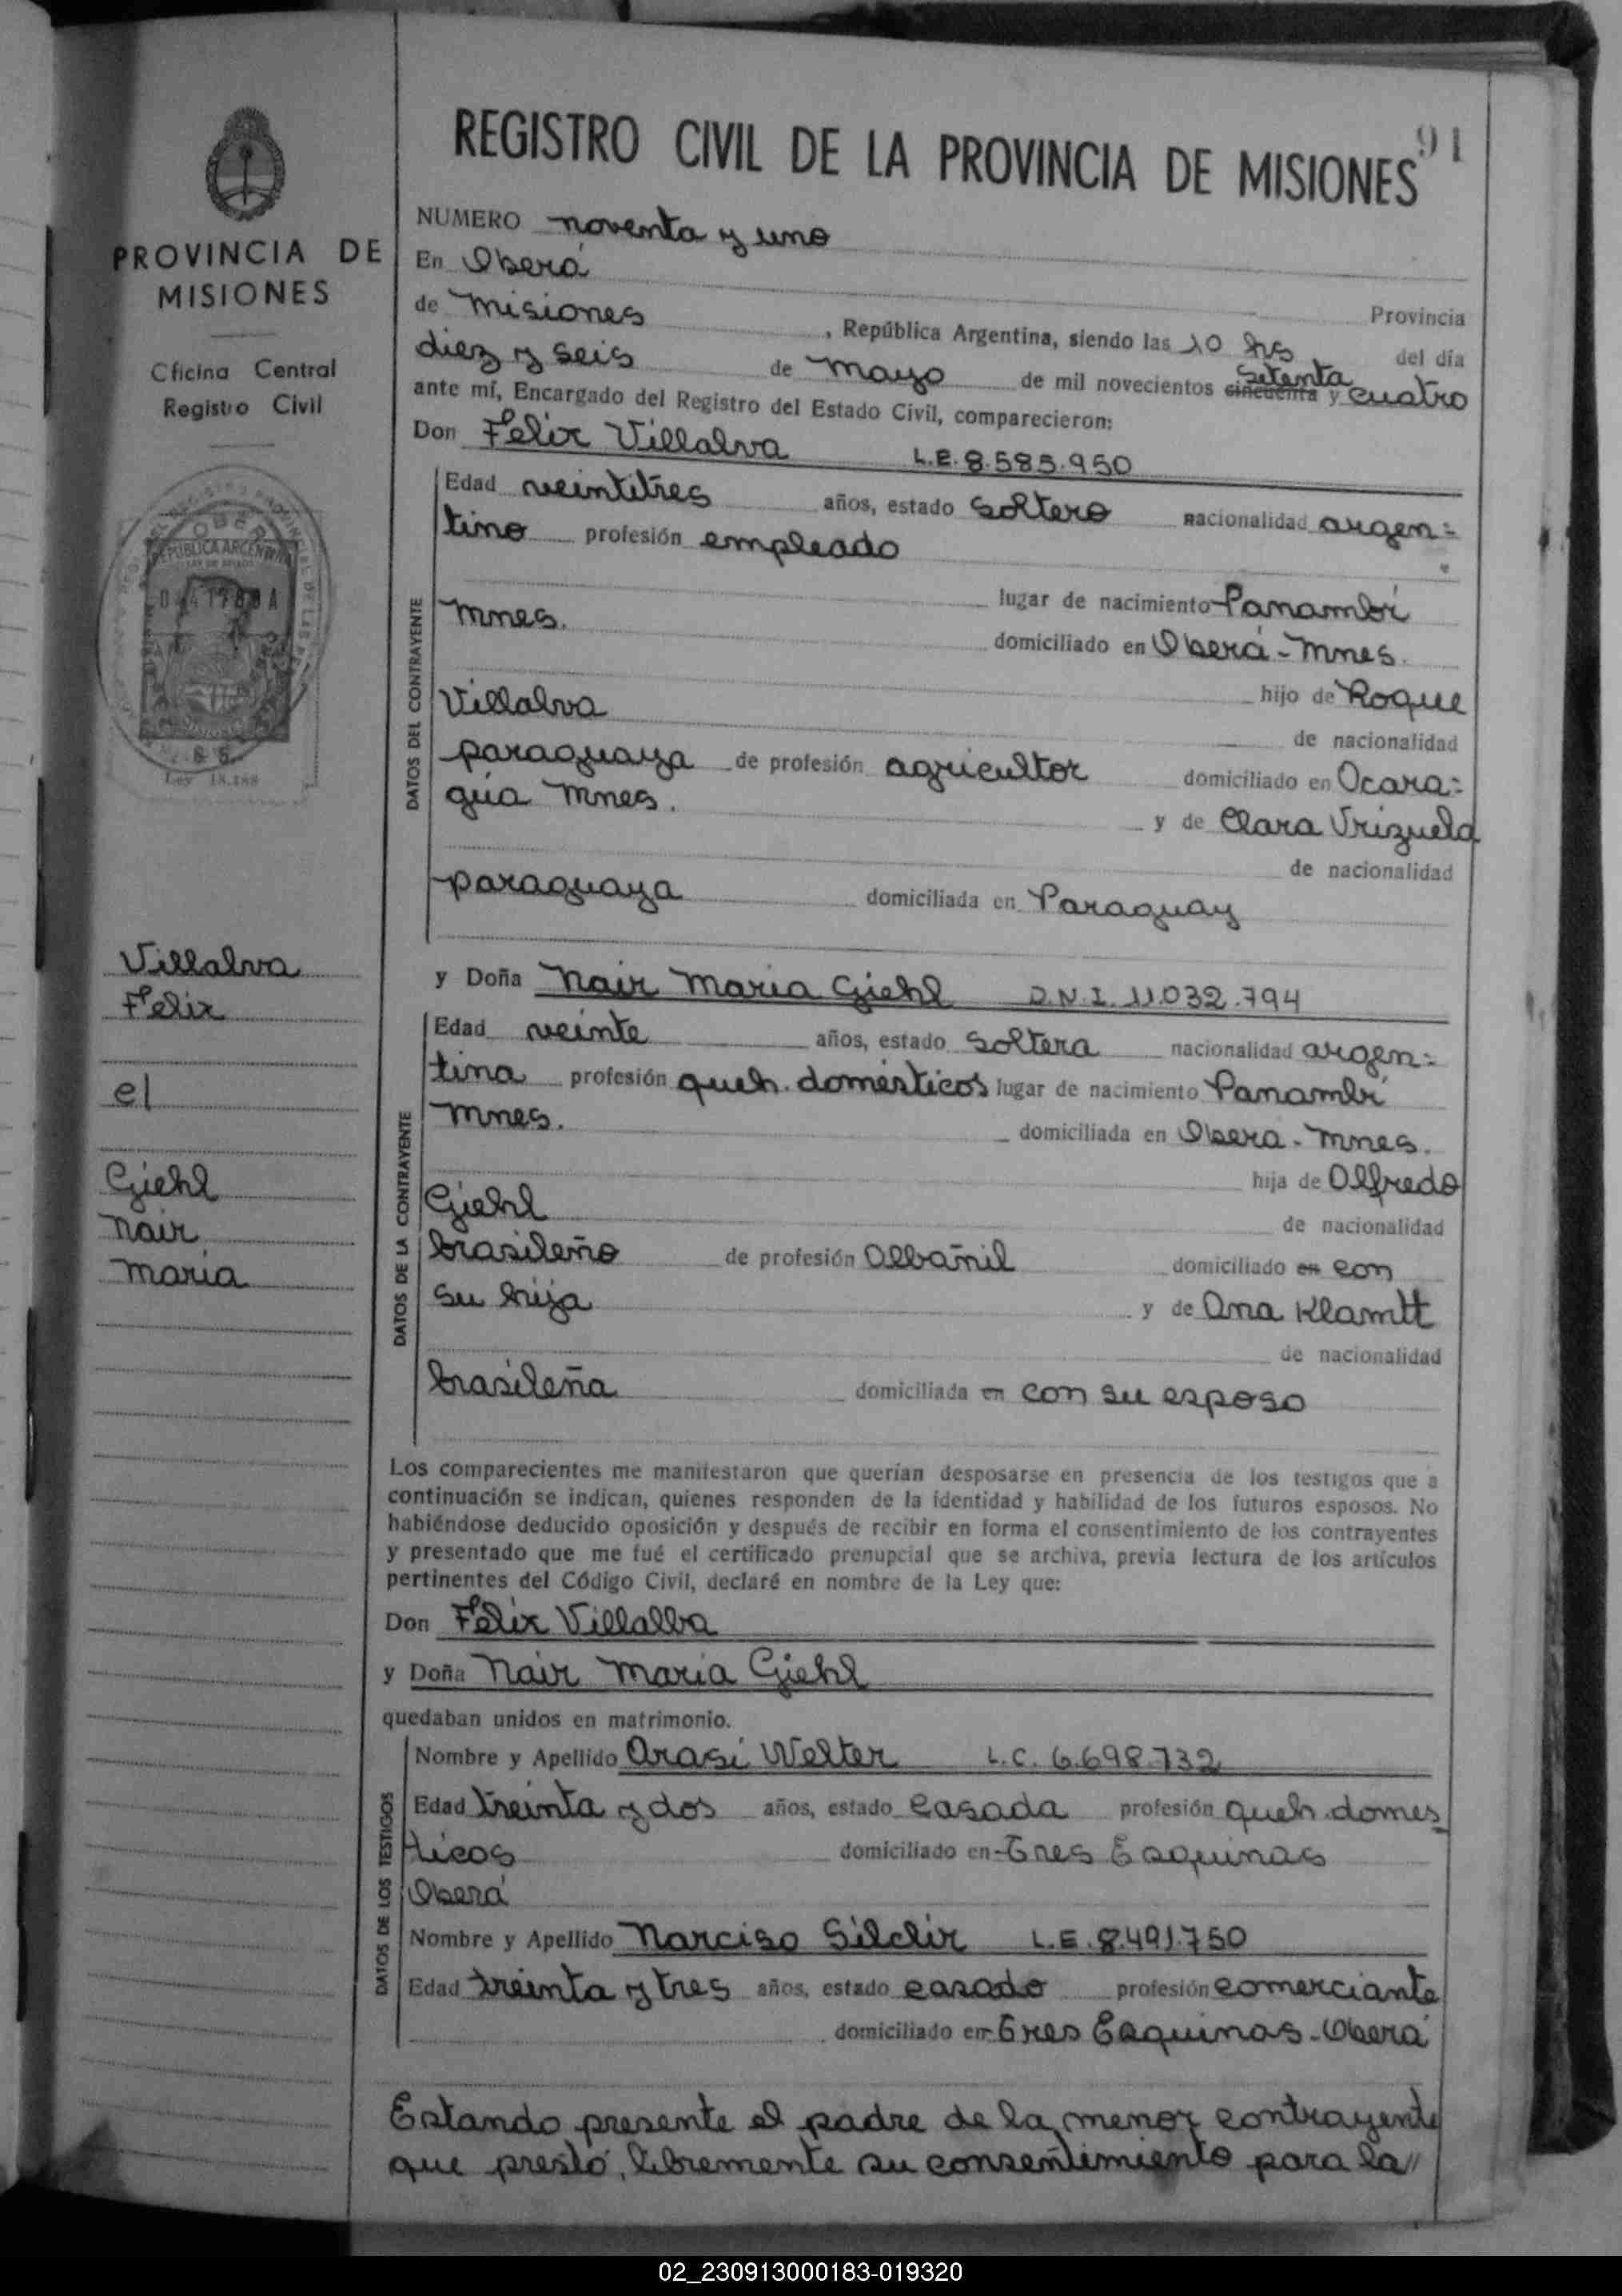 91
REGISTRO CIVIL DE LA PROVINCIA DE MISIONES
PROVINCIA DE
MISIONES
Oficina Central
Registro Civil
REPUBLICA ARGENTINA
Ley 18.188
Villalva
Felix
el
Giehl
Nair
Maria
NUMERO noventa y uno
En Oberá
Provincia
de Misiones , República Argentina, siendo las 10 hs del día
diez y seis de Mayo de mil novecientos cincuenta setenta y cuatro
ante mí, Encargado del Registro del Estado Civil, comparecieron:
Don Felix Villalva L.E. 8.585.950
DATOS DEL CONTRAYENTE
Edad veintitres años, estado soltero nacionalidad argen=
tino profesión empleado
lugar de nacimiento Panambí
Mnes.
domiciliado en Oberá - Mnes.
hijo de Roque
Villalva
de nacionalidad
paraguaya de profesión agricultor domiciliado en Ocara=
gúa Mnes. y de Clara Vrizuela
de nacionalidad
paraguaya domiciliada en Paraguay
y Doña Nair Maria Giehl D.N.I. 11.032.794
DATOS DE LA CONTRAYENTE
Edad veinte años, estado soltera nacionalidad argen=
tina profesión queh. domésticos lugar de nacimiento Panambí
Mnes. domiciliada en Obera - Mnes.
hija de Alfredo
Giehl
de nacionalidad
brasileño de profesión Albañil domiciliado en con
su hija y de Ana Klamtt
de nacionalidad
brasileña domiciliada en con su esposo
Los comparecientes me manifestaron que querían desposarse en presencia de los testigos que a
continuación se indican, quienes responden de la identidad y habilidad de los futuros esposos. No
habiéndose deducido oposición y después de recibir en forma el consentimiento de los contrayentes
y presentado que me fué el certificado prenupcial que se archiva, previa lectura de los artículos
pertinentes del Código Civil, declaré en nombre de la Ley que:
Don Felix Villalba
y Doña Nair Maria Giehl
quedaban unidos en matrimonio.
DATOS DE LOS TESTIGOS
Nombre y Apellido Arasí Welter L.C. 6.698.732
Edad treinta y dos años, estado casada profesión queh. domes
ticos domiciliado en Tres Esquinas
Oberá
Nombre y Apellido Narciso Silclir L.E. 8.491.750
Edad treinta y tres años, estado casado profesión comerciante
domiciliado en Tres Esquinas - Oberá
Estando presente el padre de la menor contrayente
que prestó, libremente su consentimiento para la//
02_230913000183-019320